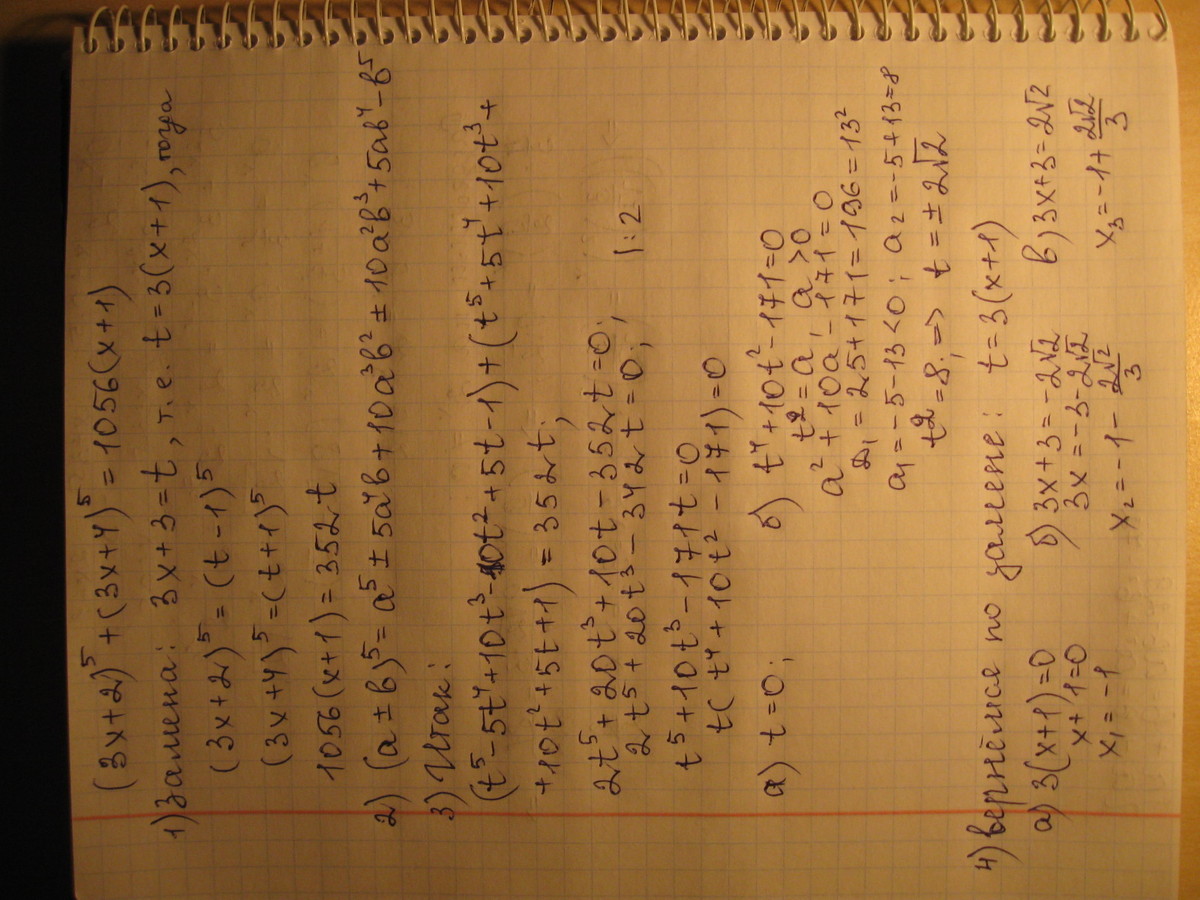 (3x+2)⁵+(3x+4)⁵=1056(x+1)
1) Замена: 3x+3=t, т.е. t=3(x+1), тогда
(3x+2)⁵=(t-1)⁵
(3x+4)⁵=(t+1)⁵
1056(x+1)=352t
2) (a±b)⁵=a⁵±5a⁴b+10a³b²±10a²b³+5ab⁴-b⁵
3) Итак:
(t⁵-5t⁴+10t³-10t²+5t-1)+(t⁵+5t⁴+10t³+
+10t²+5t+1)=352t;
2t⁵+20t³+10t-352t=0;
2t⁵+20t³-342t=0; |:2
t⁵+10t³-171t=0
t(t⁴+10t²-171)=0
а) t=0; б) t⁴+10t²-171=0
t²=a, a>0
a²+10a-171=0
D₁=25+171=196=13²
a₁=-5-13<0; a₂=-5+13=8
t²=8; => t=±2√2
4) Вернёмся по замене: t=3(x+1)
а) 3(x+1)=0 б) 3x+3=-2√2 в) 3x+3=2√2
x+1=0 3x=-3-2√2
x₁=-1 x₂=-1-2√2/3 x₃=-1+2√2/3